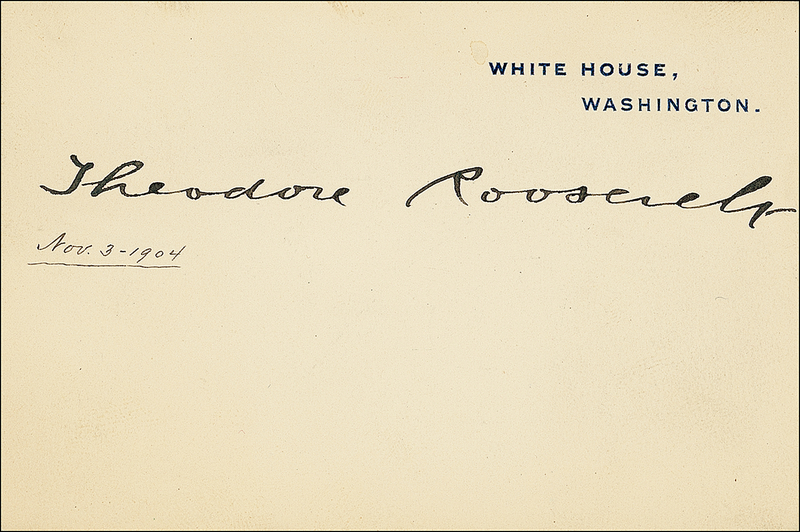 WHITE HOUSE,
WASHINGTON.
Theodore Roosevelt
Nov. 3-1904